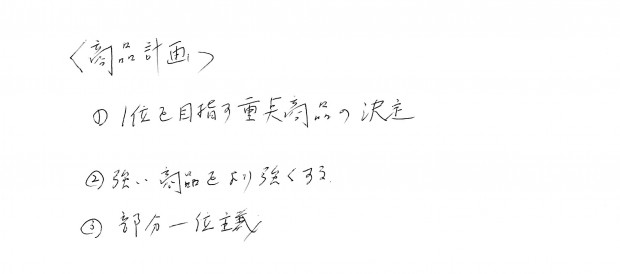 〈商品計画〉
① 1位を目指す重点商品の決定
② 強い商品をより強くする.
③ 部分一位主義